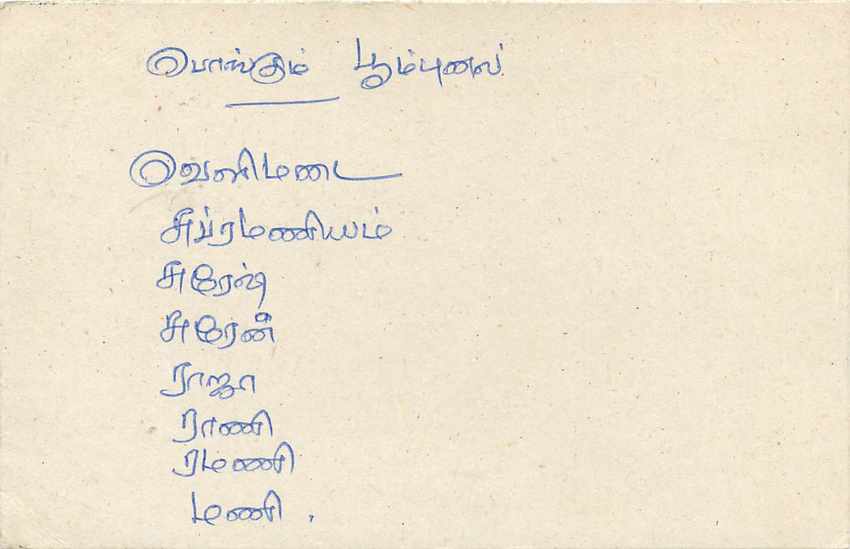 பொங்கும் பூம்புனல்
வெளிமடை
சுப்ரமணியம்
சுரேஷ்
சுரேன்
ராஜா
ராணி
ரமணி
மணி .